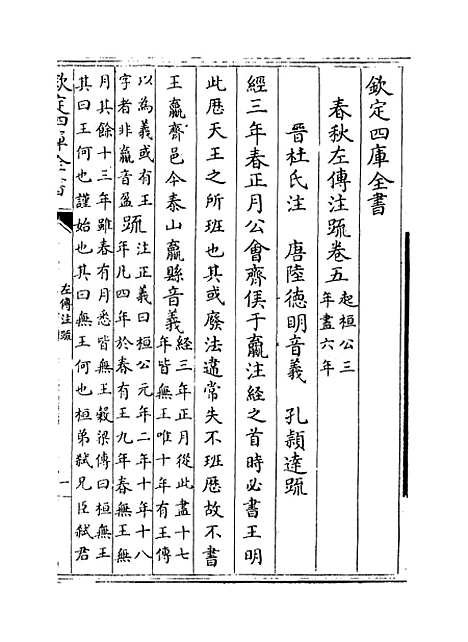 欽定四庫全書
春秋左傳注䟽卷五
起桓公三
年盡六年
晉杜氏注　唐陸徳明音義　孔頴達䟽
經三年春正月公會齊侯于嬴注經之首時必書王明
此厯天王之所班也其或廢法違常失不班厯故不書
王嬴齊邑今泰山嬴縣音義
經三年正月從此盡十七
年皆無王唯十年有王傳
以為義或有王
字者非嬴音盈
䟽
注正義曰桓公元年二年十年十八
年凡四年於春有王九年春無王無
月其餘十三年雖春有月悉皆無王榖梁傳曰桓無王
其曰王何也謹始也其曰無王何也桓弟弑兄臣弑君
欽定四庫全書
左傳注䟽
一